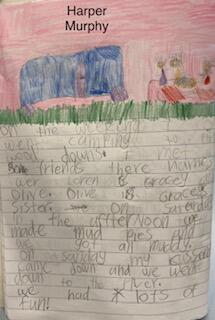 Harper
Murphy
On the weekend I
went camping to the
wood downs. I met
friends there name
wer Loren & Gracey and
Olive. Olive is Graceys
sister. On Saterday
the afternoon we
made mud pies and
we got all muddy.
on sunday my
came down and we went
down to the river.
we had lots of
fun!